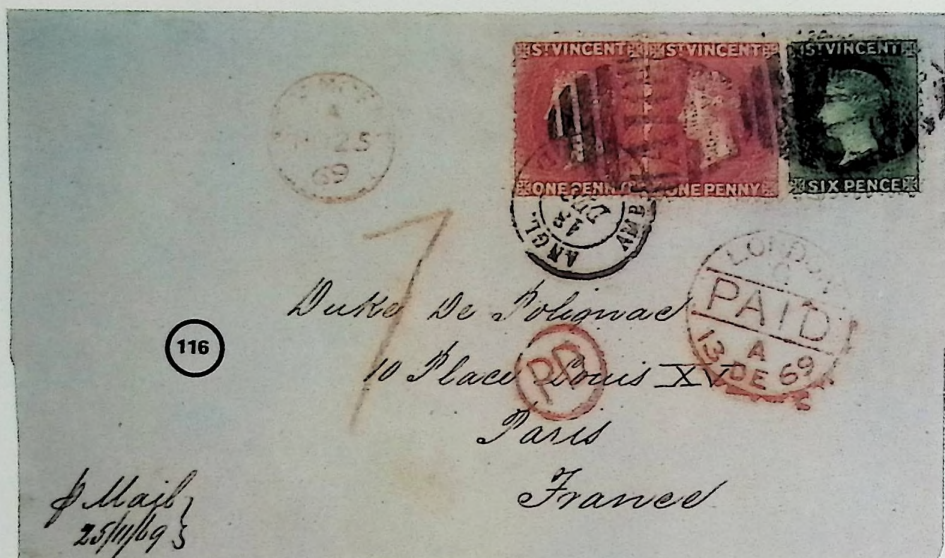 ST VINCENT ST VINCENT ST VINCENT
ONE PENNY ONE PENNY SIX PENCE
A
25
69
ANGL.
AMB
18
LONDON
PAID
A
13 DE 69
7
Duke De Polignac
116
10 Place Louis XV
PD
Paris
France
p Mail
25/11/69